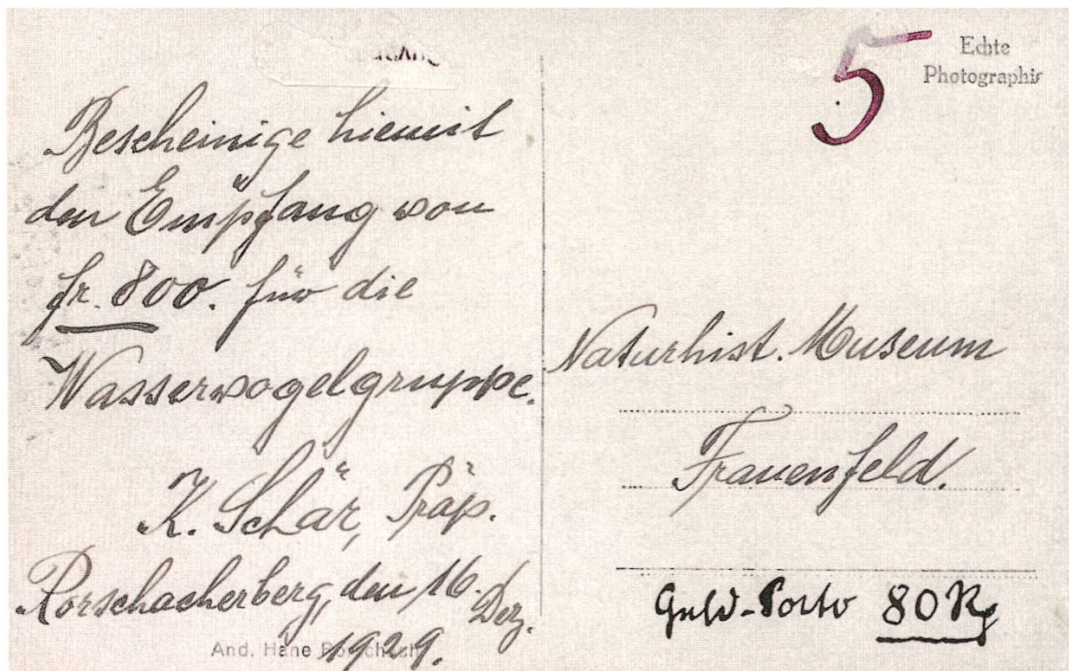 Bescheinige hiemit
den Empfang von
fr. 800. für die
Wasservogelgruppe.
K. Schär, Präp.
Rorschacherberg, den 16. Dez.
1929.
And. Häne Rorschach
5
Echte
Photographie
Naturhist. Museum
Frauenfeld.
Geld-Porto 80 Rp